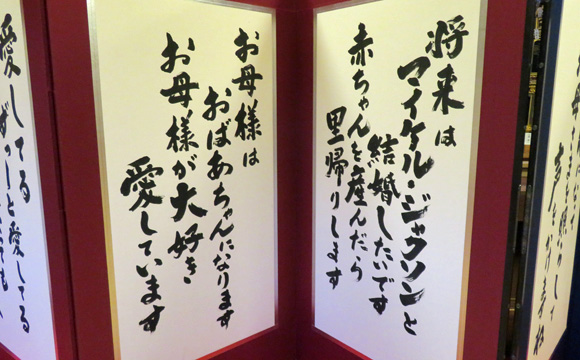 将来は
マイケル・ジャクソンと
結婚したいです
赤ちゃんを産んだら
里帰りします
お母様は
おばあちゃんになります
お母様が大好き
愛しています
愛してる
ずーっと愛してる